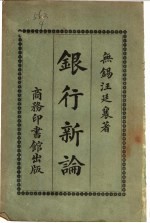 無錫汪廷襄著
銀行新論
商務印書館出版